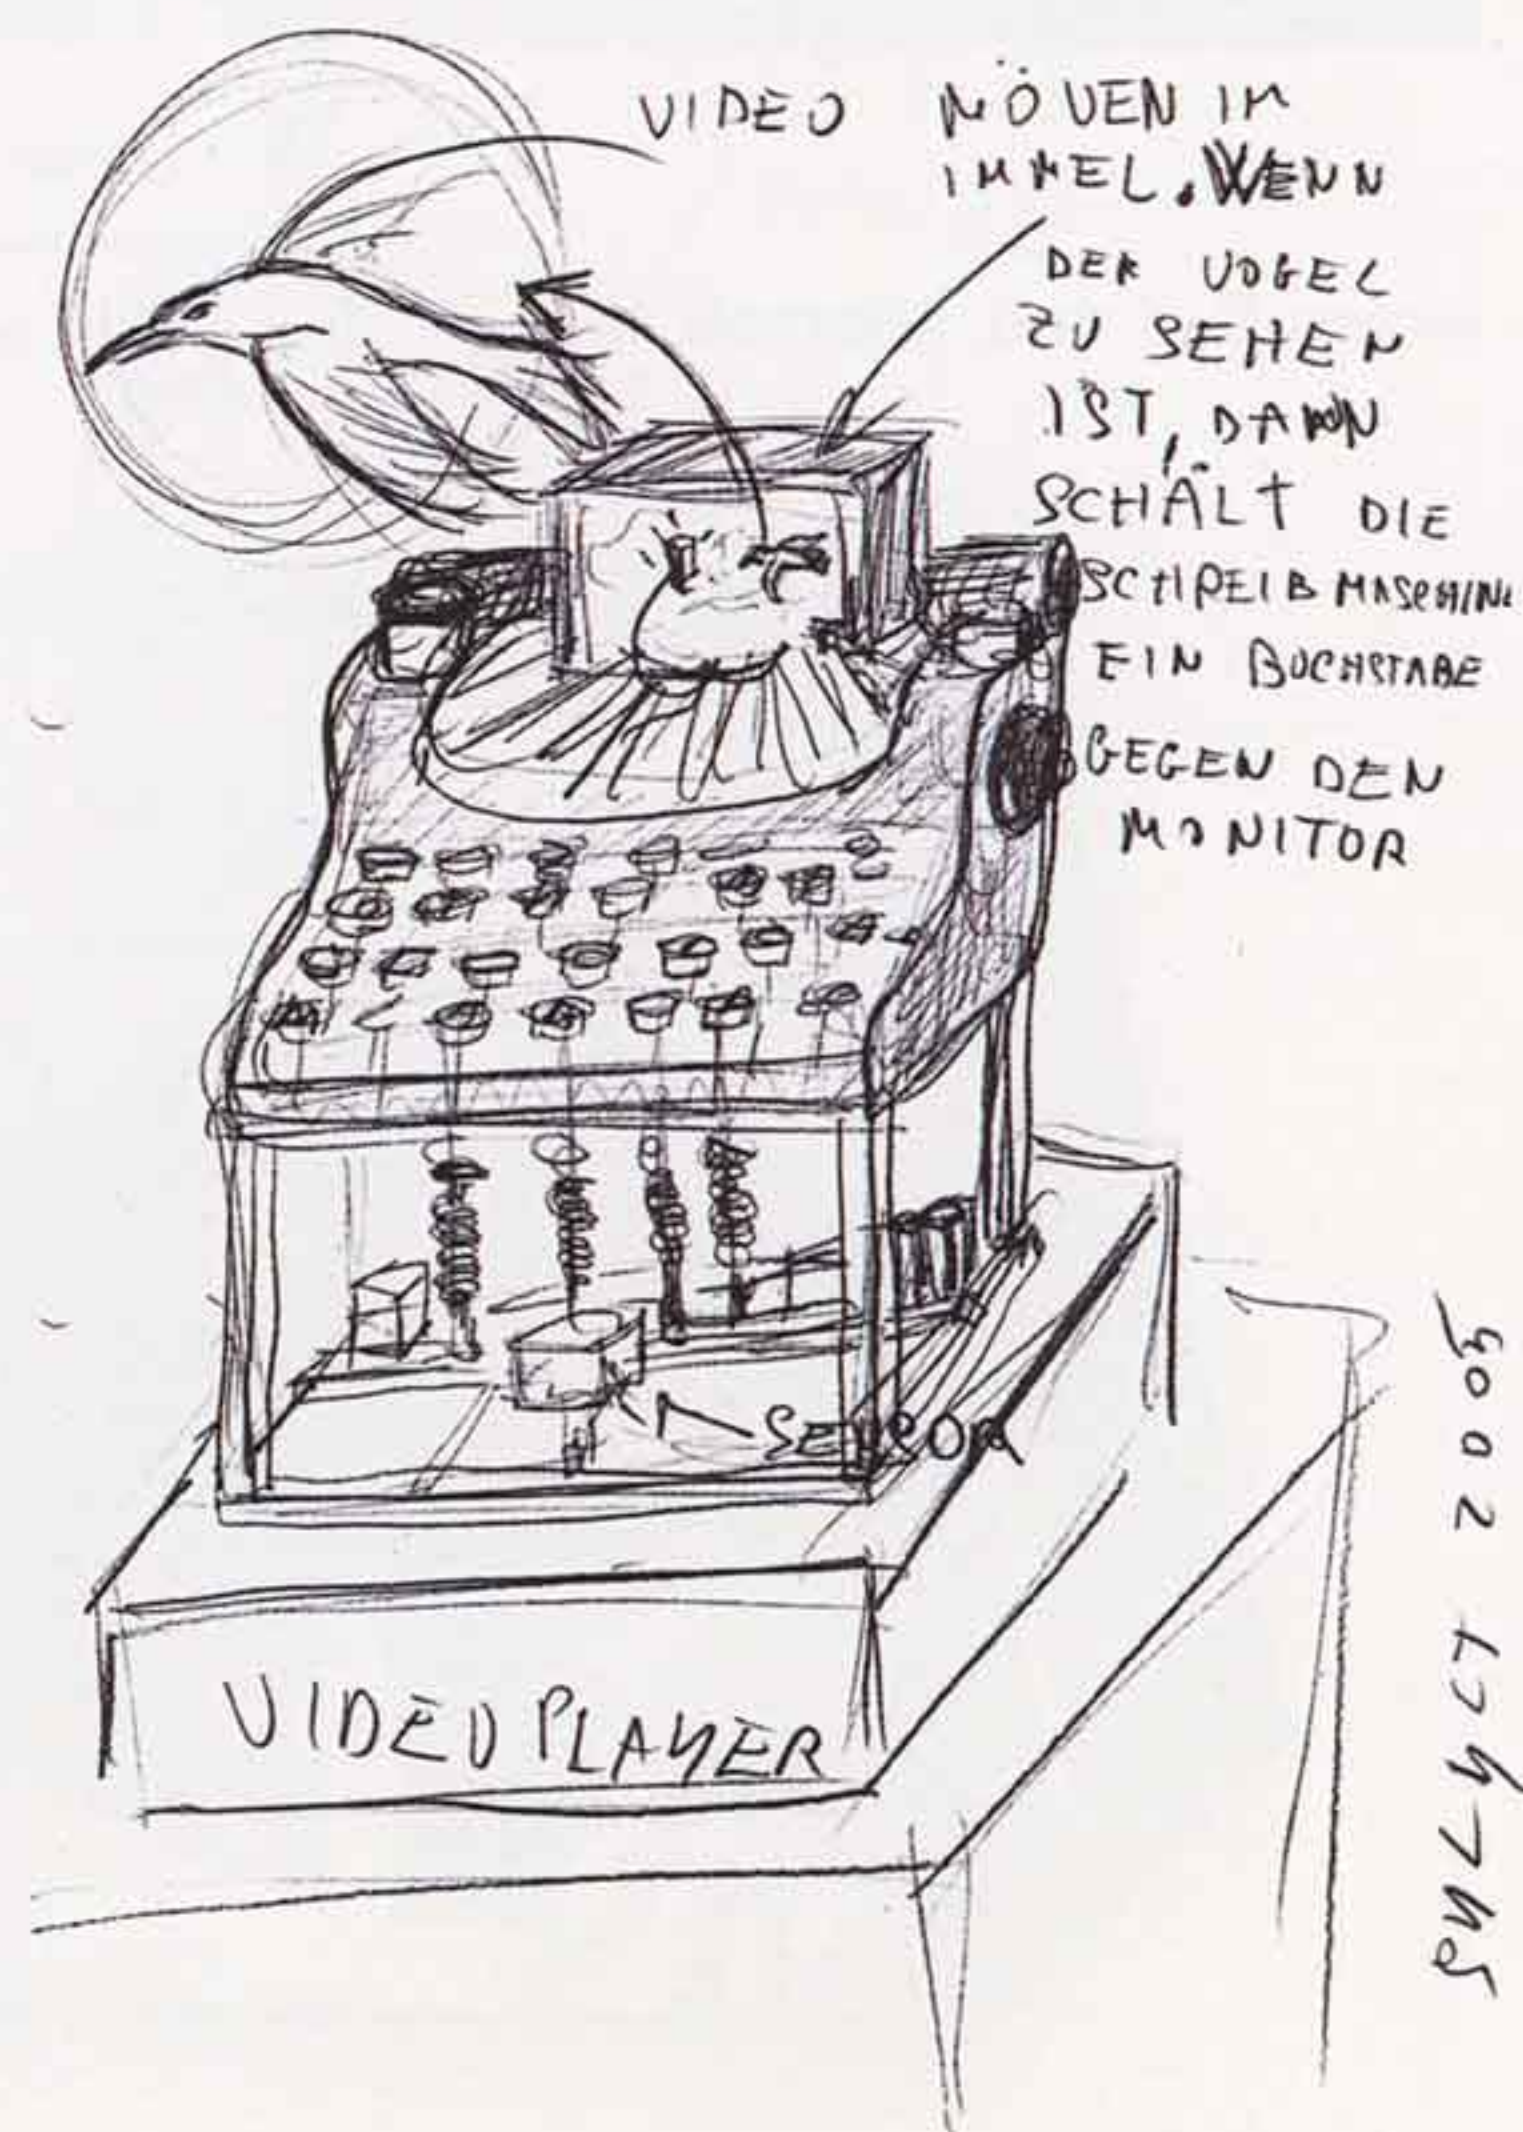 VIDEO MÖVEN IM
IMMEL. WENN
DER VOGEL
ZU SEHEN
IST, DANN
SCHÄLT DIE
SCHREIBMASCHINE
EIN BUCHSTABE
GEGEN DEN
MONITOR
SENSOR
VIDEOPLAYER